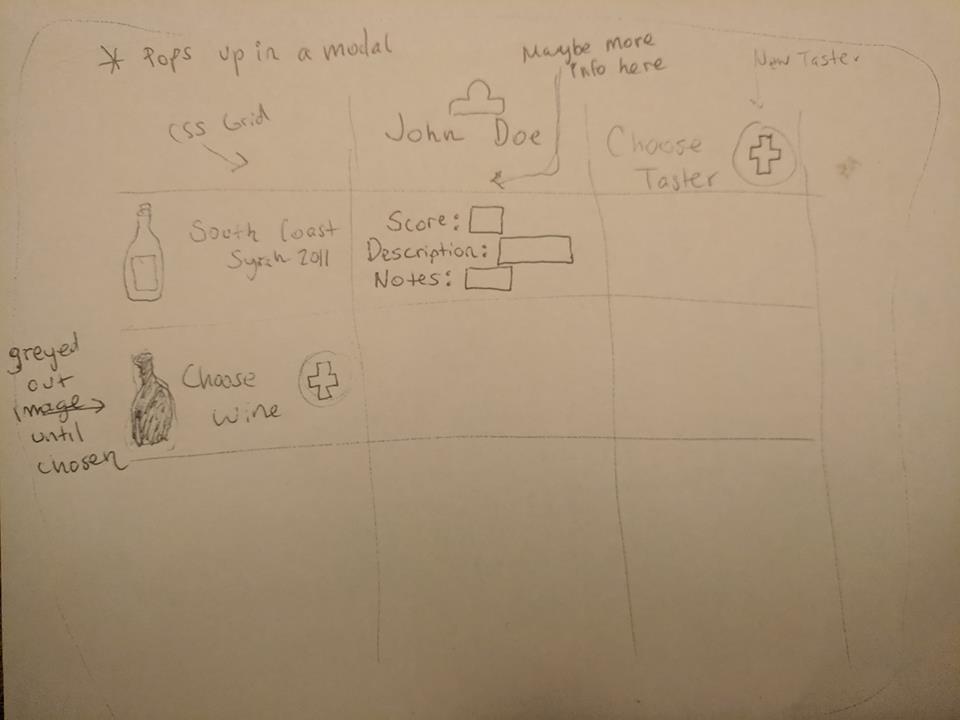 * Pops up in a modal
Maybe more
info here
New Taster
CSS Grid
John Doe
Choose
Taster
South Coast
Syrah 2011
Score:
Description:
Notes:
greyed
out
image
until
chosen
Choose
wine